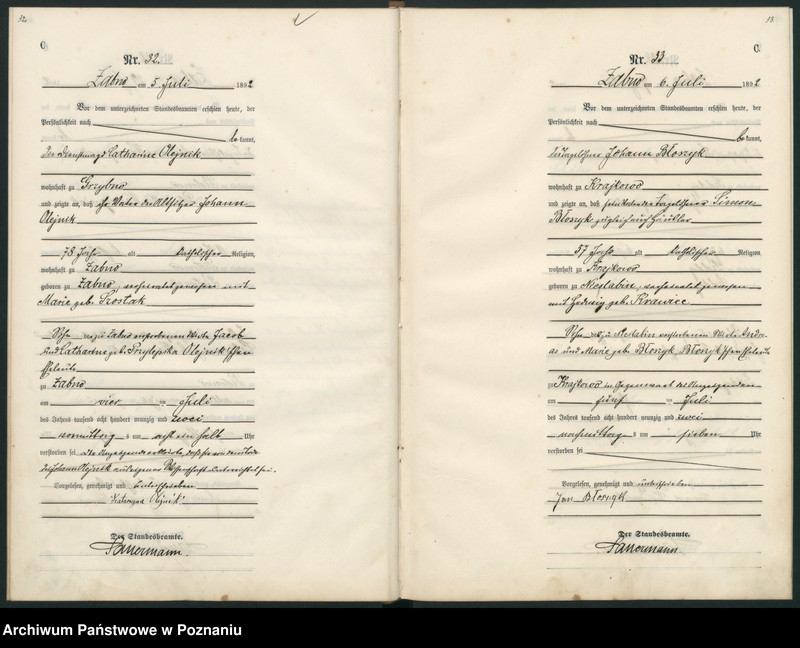 32.
C.
Nr. 32.
Żabno am 5. Juli 1892
Vor dem unterzeichneten Standesbeamten erschien heute, der
Persönlichkeit nach
be kannt,
die Dienstmagd Catharine Olejnik
wohnhaft zu Grzybno
und zeigte an, daß ihr Vater der Altsitzer Johann
Olejnik
78 Jahre alt katholischer Religion,
wohnhaft zu Żabno
geboren zu Żabno, verheiratet gewesen mit
Marie geb.
Sohn zu Żabno verstorbenen Jacob
und Catharine geb. Olejnik'schen
Eheleute
zu Żabno
am vier ten Juli
des Jahres tausend acht hundert neunzig und zwei
vormittag s um acht ein halb Uhr
verstorben sei. Die Anzeigende erklärte, daß sie von dem Tode
des Johann Olejnik aus eigener Wissenschaft unterrichtet sei.
Vorgelesen, genehmigt und unterschrieben
Katarzyna Olejnik
Der Standesbeamte.
Sauermann.
33.
C.
Nr. 33
Żabno am 6. Juli 1892
Vor dem unterzeichneten Standesbeamten erschien heute, der
Persönlichkeit nach
be kannt,
der Tagelöhner Johann Błoszyk
wohnhaft zu Krajkowo
und zeigte an, daß sein Vater der Tagelöhner Simon
Błoszyk zugleich auch Häusler
57 Jahre alt katholischer Religion
wohnhaft zu Krajkowo
geboren zu Nieslabin, verheiratet gewesen
mit Hedwig geb. Krawiec
Sohn der zu Nieslabin verstorbenen Andre-
as und Marie geb. Błoszyk Błoszyk'schen Eheleute
zu Krajkowo in Gegenwart des Anzeigenden
am fünf ten Juli
des Jahres tausend acht hundert neunzig und zwei
nachmittag s um sieben Uhr
verstorben sei
Vorgelesen, genehmigt und unterschrieben
Jan Błoszyk
Der Standesbeamte.
Sauermann.
Archiwum Państwowe w Poznaniu